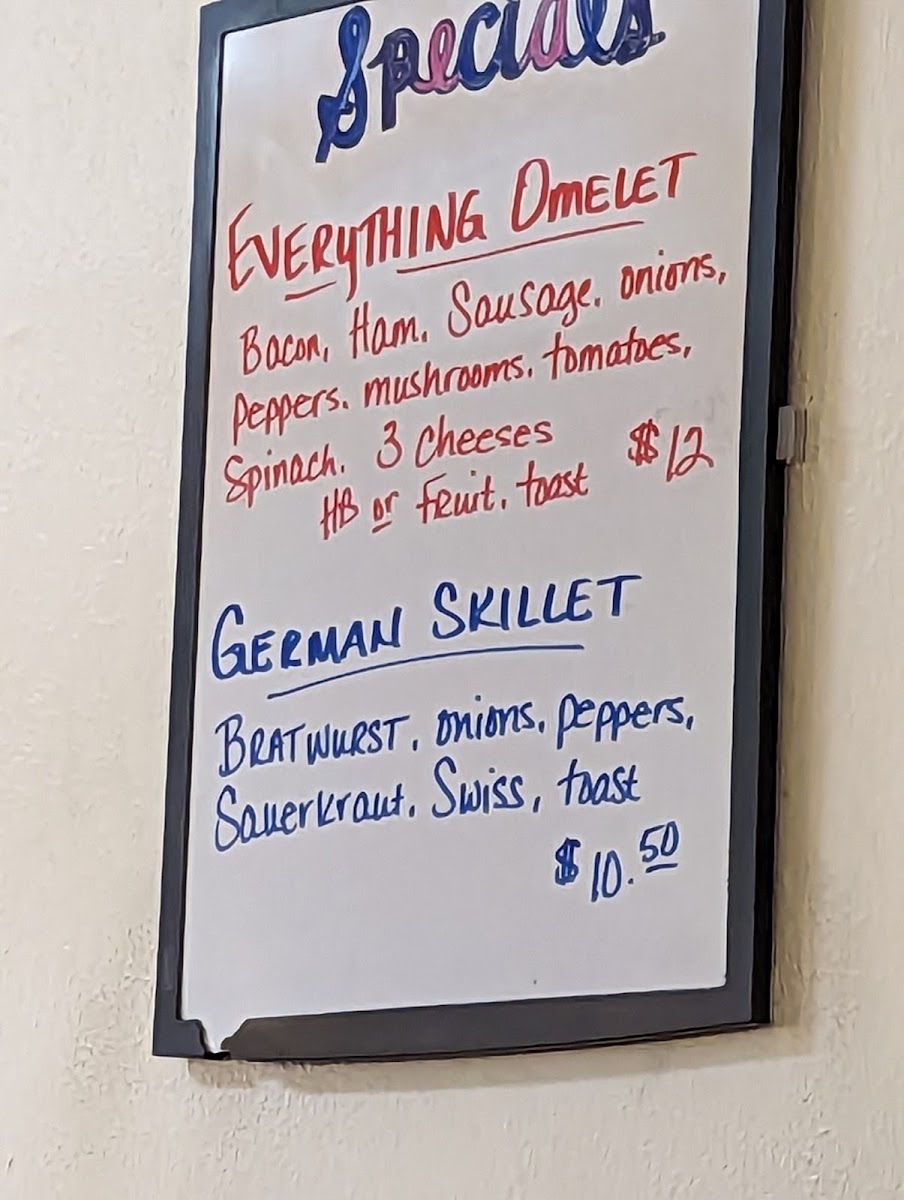 Specials
EVERYTHING OMELET
Bacon, Ham, Sausage, onions,
Peppers, mushrooms, tomatoes,
Spinach, 3 Cheeses
HB or Fruit, toast $12
GERMAN SKILLET
BRATWURST, onions, peppers,
Sauerkraut, Swiss, toast
$10.50